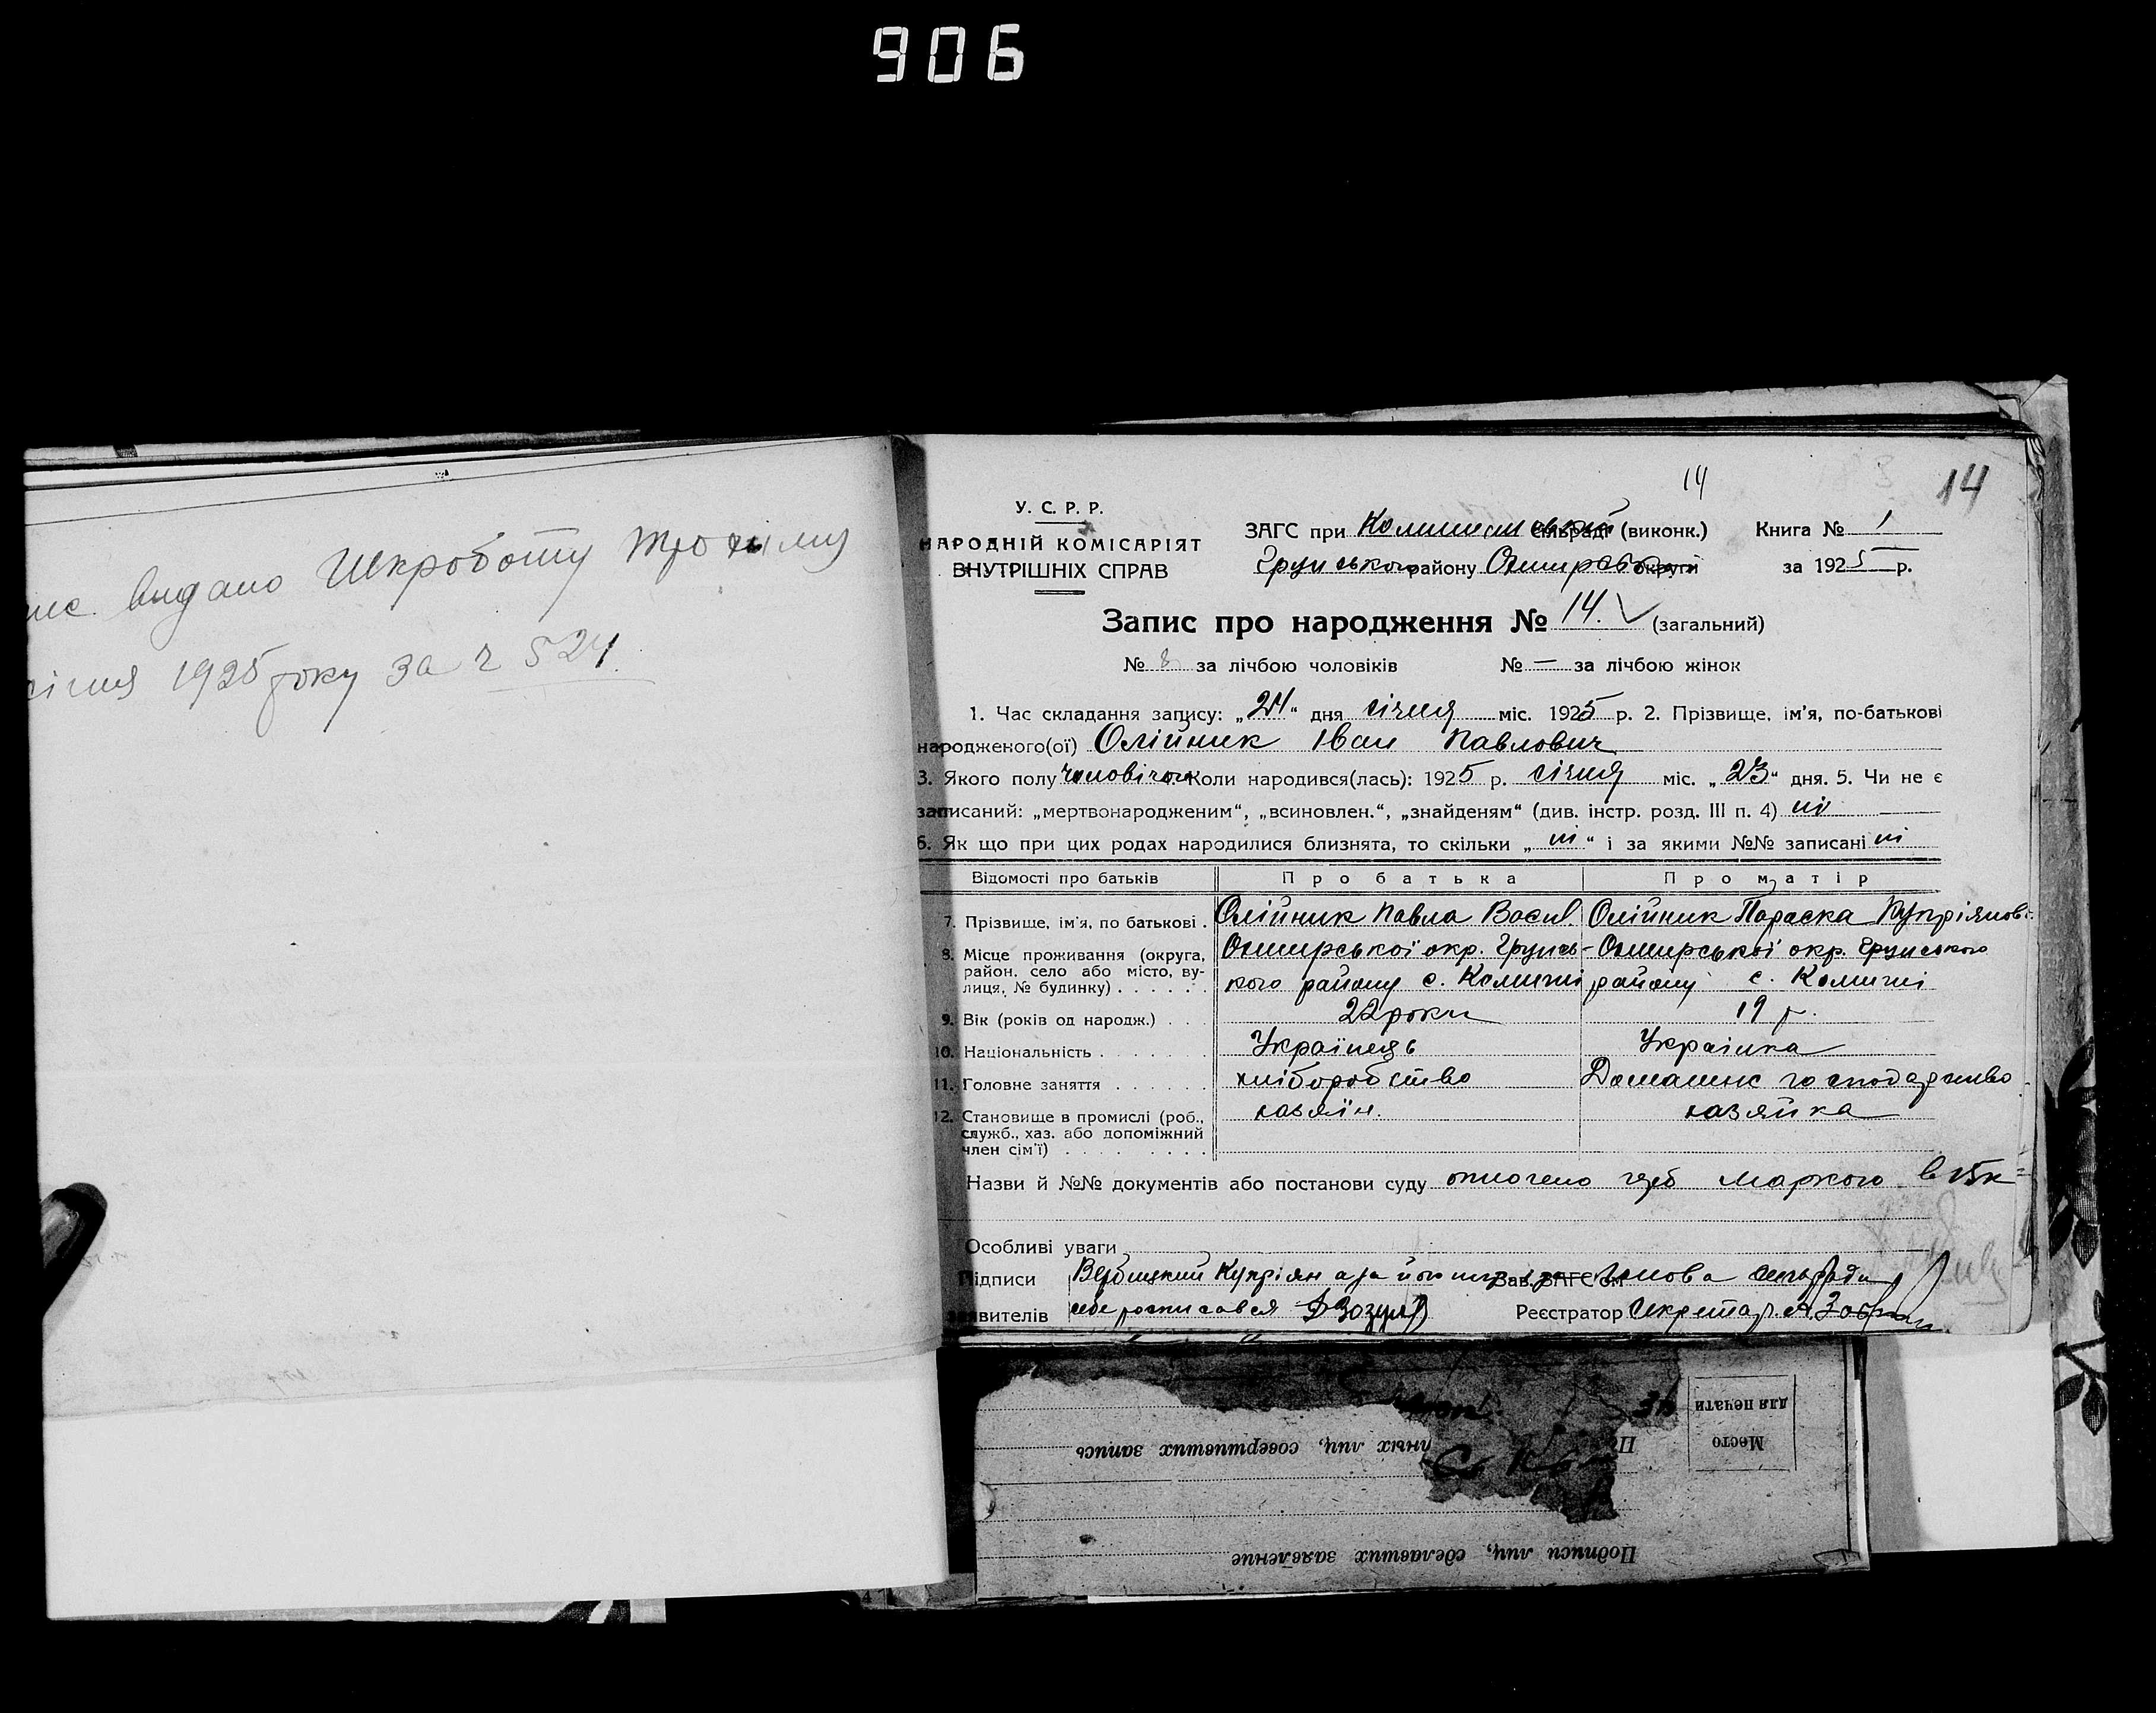 906
видано Шкроботу Трохиму
січня 1925 року за ч 524
14
14
У. С. Р. Р.
НАРОДНІЙ КОМІСАРІЯТ
ВНУТРІШНІХ СПРАВ
ЗАГС при сільраді (виконк.) Книга № 1
Грунського району округи за 1925 р.
Запис про народження № 14. (загальний)
№ 8 за лічбою чоловіків № — за лічбою жінок
1. Час складання запису: „24“ дня січня міс. 1925 р. 2. Прізвище, ім'я, по-батькові
народженого(ої) Олійник Іван Павлович
3. Якого полу чоловічого Коли народився(лась): 1925 р. січня міс. „23“ дня. 5. Чи не є
записаний: „мертвонародженим“, „всиновлен.“, „знайденям“ (див. інстр. розд. III п. 4) ні
6. Як що при цих родах народилися близнята, то скільки „ні“ і за якими №№ записані ні
Відомості про батьків Про батька Про матір
7. Прізвище, ім'я, по батькові . Олійник Павла Васил. Олійник Параска Купріянов.
8. Місце проживання (округа, район, село або місто, вулиця, № будинку) . . . . . окр. Грунсь- окр. Грунського
кого району с. Комиші району с. Комиші
9. Вік (років од народж.) . . . 22 роки 19 р.
10. Національність . . . . . . . Українець Українка
11. Головне заняття . . . . . . хліборобство Домашнє господарство
12. Становище в промислі (роб., служб., хаз. або допоміжний член сім'ї) . . . . . . . . . хазяїн. хазяйка
Назви й №№ документів або постанови суду оплочено герб Маркою в 15 к
Особливі уваги
Підписи Вербицкий Купріян а за його Зав. ЗАГС'ом Голова сільради
заявителів себе росписався Зозуля Реєстратор Секретар. А.
Место
для печати
лиц, совершивших запись
Подписи лиц, сделавших заявление